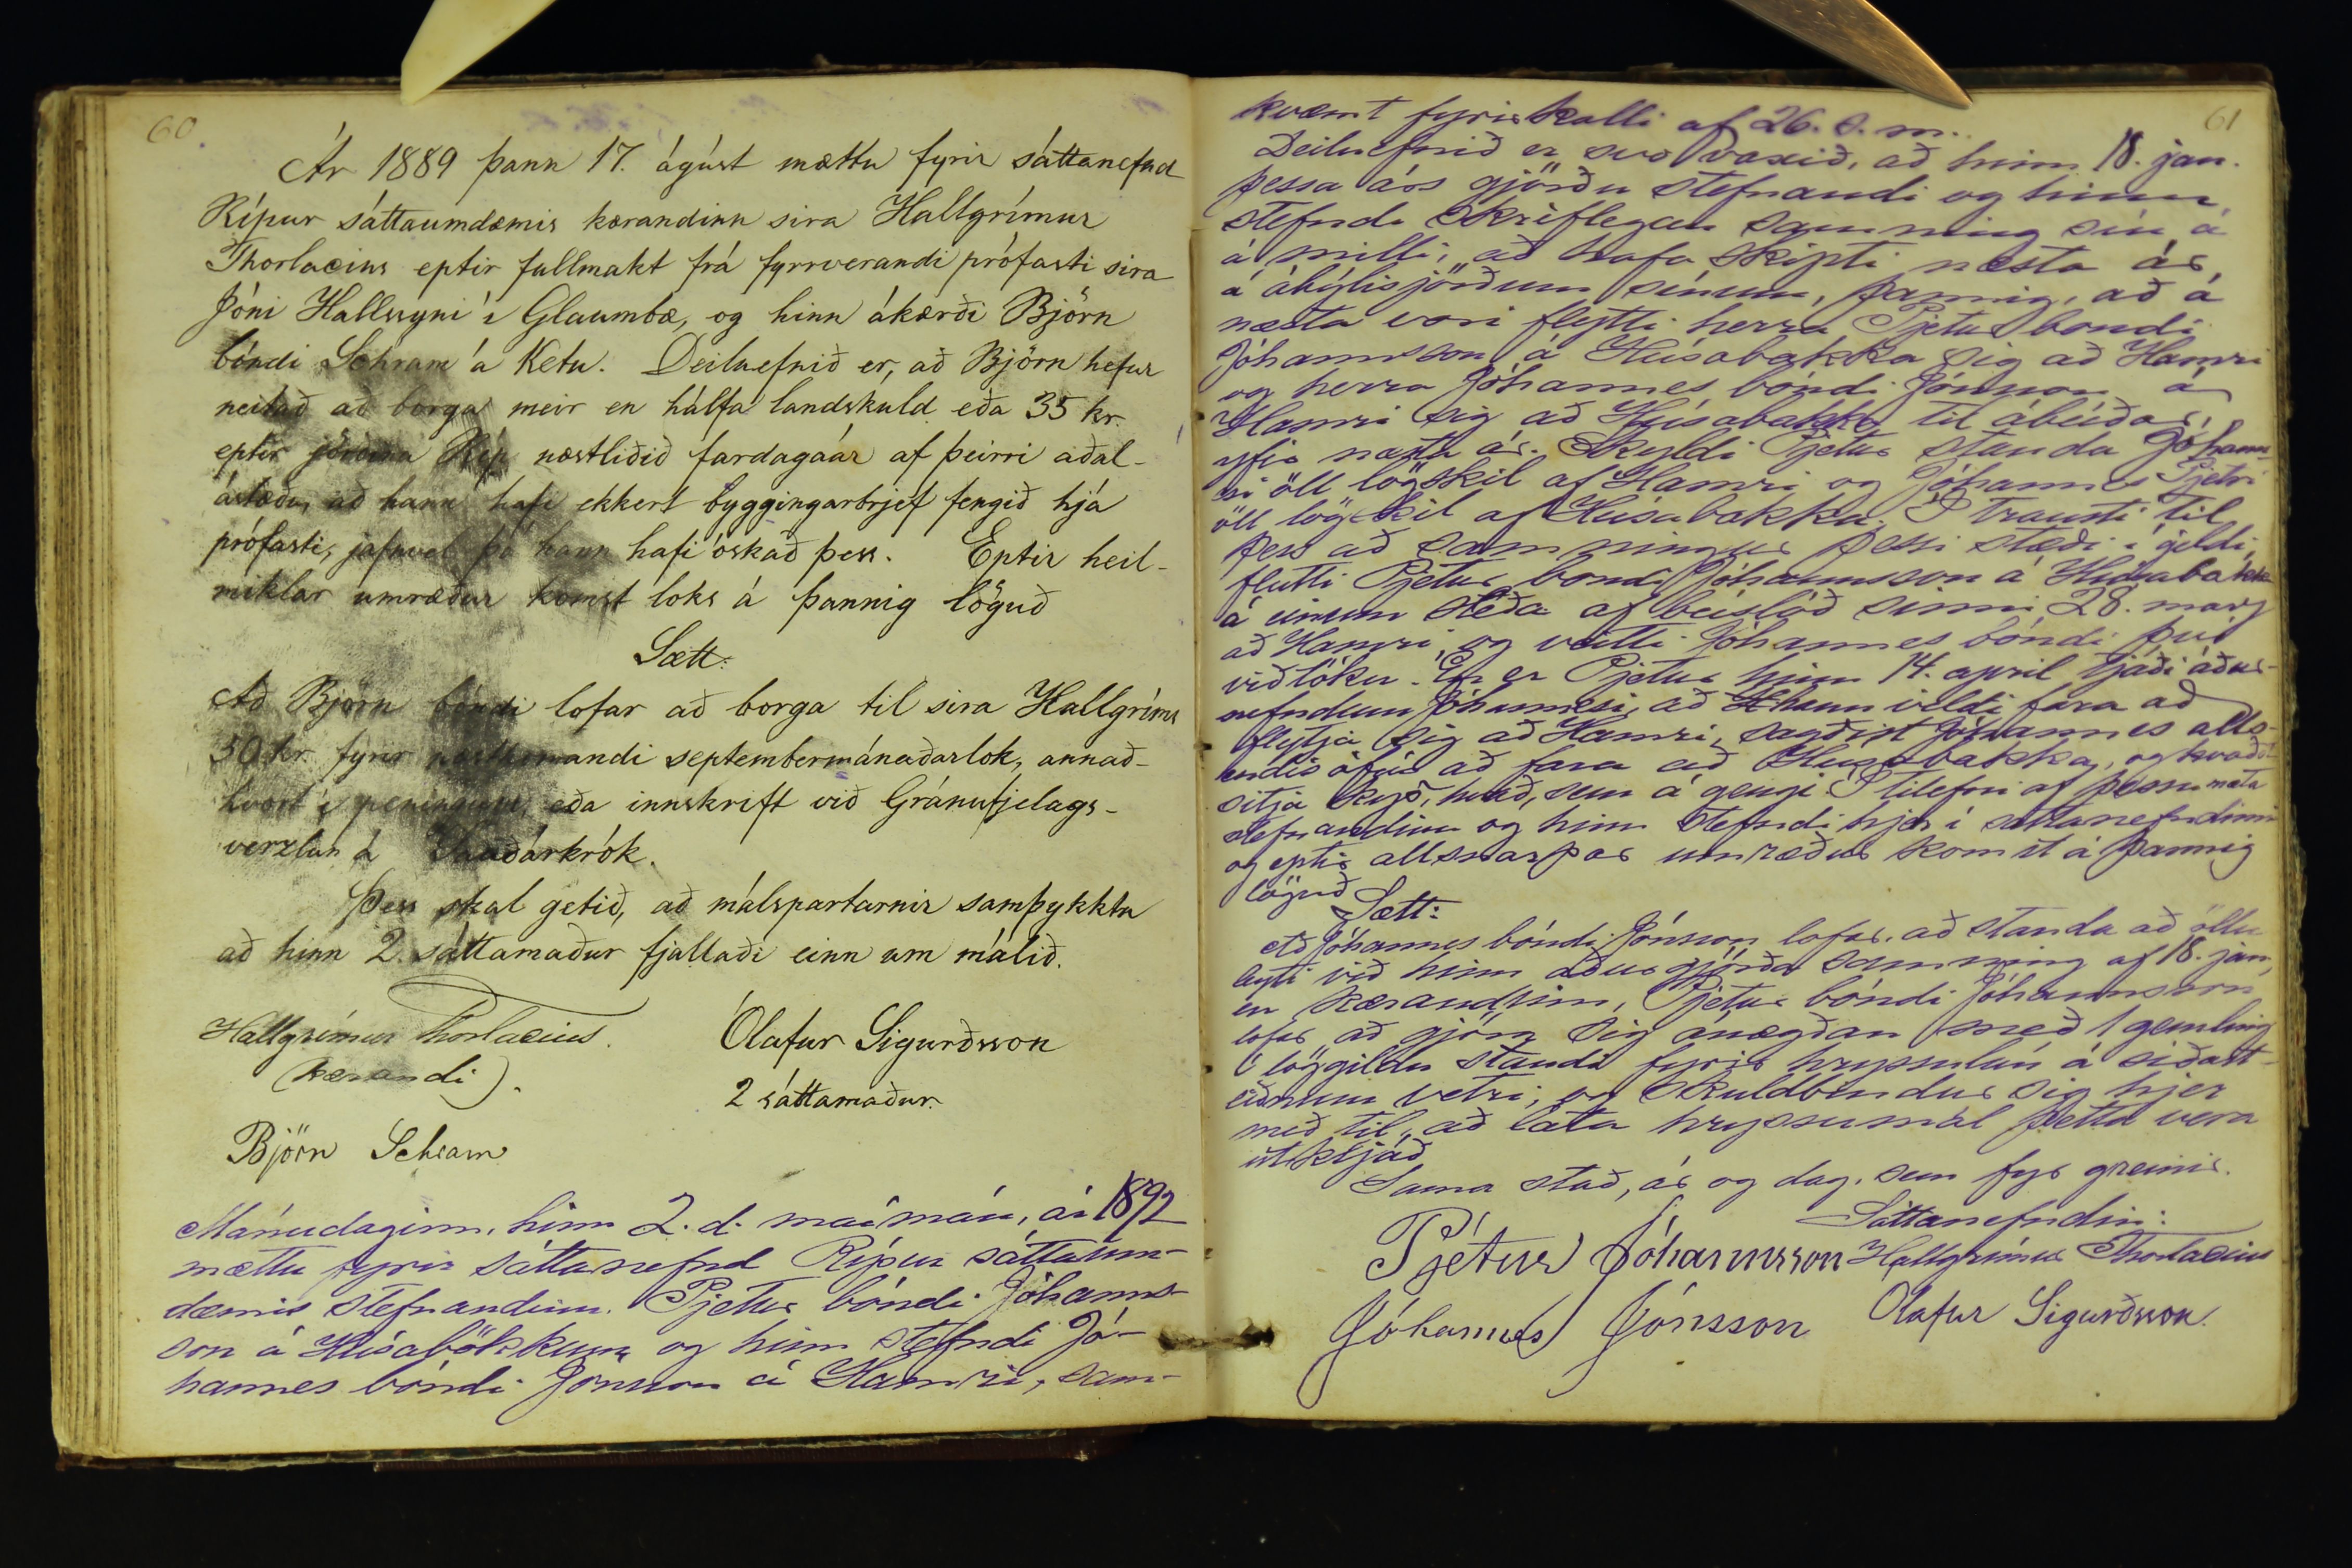 60
Ár 1889 þann 17. ágúst mættu fyrir sáttanefnd
Rípur sáttaumdæmis kærandinn sira Hallgrímur
Thorlacius eptir fullmakt frá fyrrverandi prófasti sira
Jóni Hallssyni í Glaumbæ, og hinn ákærði Björn
bóndi Schram á Ketu. Deiluefnið er, að Björn hefur
neitað að borga meir en hálfa landskuld eða 35 kr.
eptir jörðina Ríp næstliðið fardagaár af þeirri aðal-
ástæðu, að hann hafi ekkert byggingarbrjef fengið hjá
prófasti, jafnvel þó hann hafi óskað þess. Eptir heil-
miklar umræður komst loks á þannig löguð
Sætt:
Að Björn bóndi lofar að borga til sira Hallgríms
50 kr. fyrir næstkomandi septembermánaðarlok, annað-
hvort í peningum, eða innskrift við Gránufjelags-
verzlun á Sauðárkrók.
Þess skal getið, að málspartarnir samþykktu
að hinn 2. sáttamaður fjallaði einn um málið.
Hallgrímur Thorlacius.
(kærandi).
Ólafur Sigurðsson
2 sáttamaður.
Björn Schram
Mánudaginn, hinn 2. d. maímán, ár 1892
mættu fyrir sáttanefnd Rípur sáttaum-
dæmis stefnandinn. Pjetur bóndi Jóhanns-
son á Húsabökkum og hinn stefndi Jó-
hannes bóndi Jónsson á Hamri, sam-
61
kvæmt fyrirkalli af 26. s. m.
Deiluefnið er svo vaxið, að hinn 18. jan.
þessa árs gjörðu stefnandi og hinn
stefndi skriflegan samning sín á
á milli, að hafa skipti næsta ár,
á ábýlisjörðum sínum, þannig, að á
næsta vori flytti herra Pjetur bóndi
Jóhannsson á Húsabakka sig að Hamri
og herra Jóhannes bóndi Jónsson á
Hamri sig að Húsabakka til ábúðar,
yfir næsta ár. Skyldi Pjetur standa Jóhann-
si öll lögskil af Hamri og Jóhannes Pjetri
öll lögskil af Húsabakka. Í trausti til
þess að samningur þessi stæði í gildi,
flutti Pjetur bóndi Jóhannsson á Húsabakka
á einum sleða af búslóð sinni 28. marz
að Hamri, og veitti Jóhannes bóndi því
viðtöku. En er Pjetur hinn 14. apríl tjáði áður-
nefndum Jóhannesi, að hann vildi fara að
flytja sig að Hamri, sagðist Jóhannes alls-
endis ófús að fara að Húsabakka, og kvaðst
sitja kyr, hvað, sem á gengi. Í tilefni af þessu mæta
stefnandinn og hinn stefndi hjer í sáttanefndinni
og eptir allsnarpar umræður komst á þannig
löguð
Sætt:
Að Jóhannes bóndi Jónsson lofar, að standa að öllu
leyti við hinn áður gjörða samning af 18. jan,
en kærandinn, Pjetur bóndi Jóhannsson
lofar að gjöra sig ánægðan með 1 gemling
í löggildu standi fyrir hryssulán á síðast-
liðnum vetri, og skuldbindur sig hjer
með til, að láta hryssumál þetta vera
útkljáð
Sama stað, ár og dag, sem fyr greinir.
Sáttanefndin:
Pjétur Jóhannsson Hallgrímur Thorlacius
Jóhannes Jónsson Ólafur Sigurðsson.